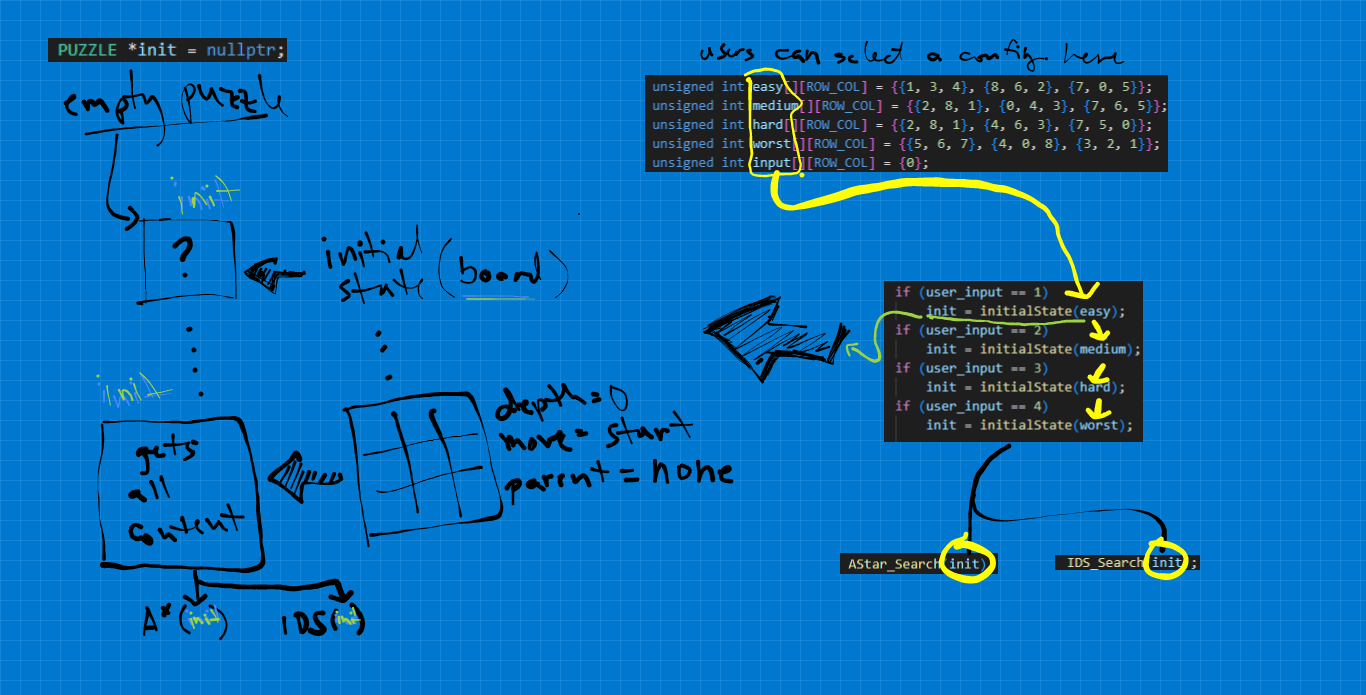 PUZZLE *init = nullptr;
empty puzzle
init
?
initial
state (board)
init
gets
all
content
depth = 0
move = start
parent = none
A*(init)
IDS(init)
users can select a config. here
unsigned int easy[][ROW_COL] = {{1, 3, 4}, {8, 6, 2}, {7, 0, 5}};
unsigned int medium[][ROW_COL] = {{2, 8, 1}, {0, 4, 3}, {7, 6, 5}};
unsigned int hard[][ROW_COL] = {{2, 8, 1}, {4, 6, 3}, {7, 5, 0}};
unsigned int worst[][ROW_COL] = {{5, 6, 7}, {4, 0, 8}, {3, 2, 1}};
unsigned int input[][ROW_COL] = {0};
if (user_input == 1)
init = initialState(easy);
if (user_input == 2)
init = initialState(medium);
if (user_input == 3)
init = initialState(hard);
if (user_input == 4)
init = initialState(worst);
AStar_Search(init)
IDS_Search(init);